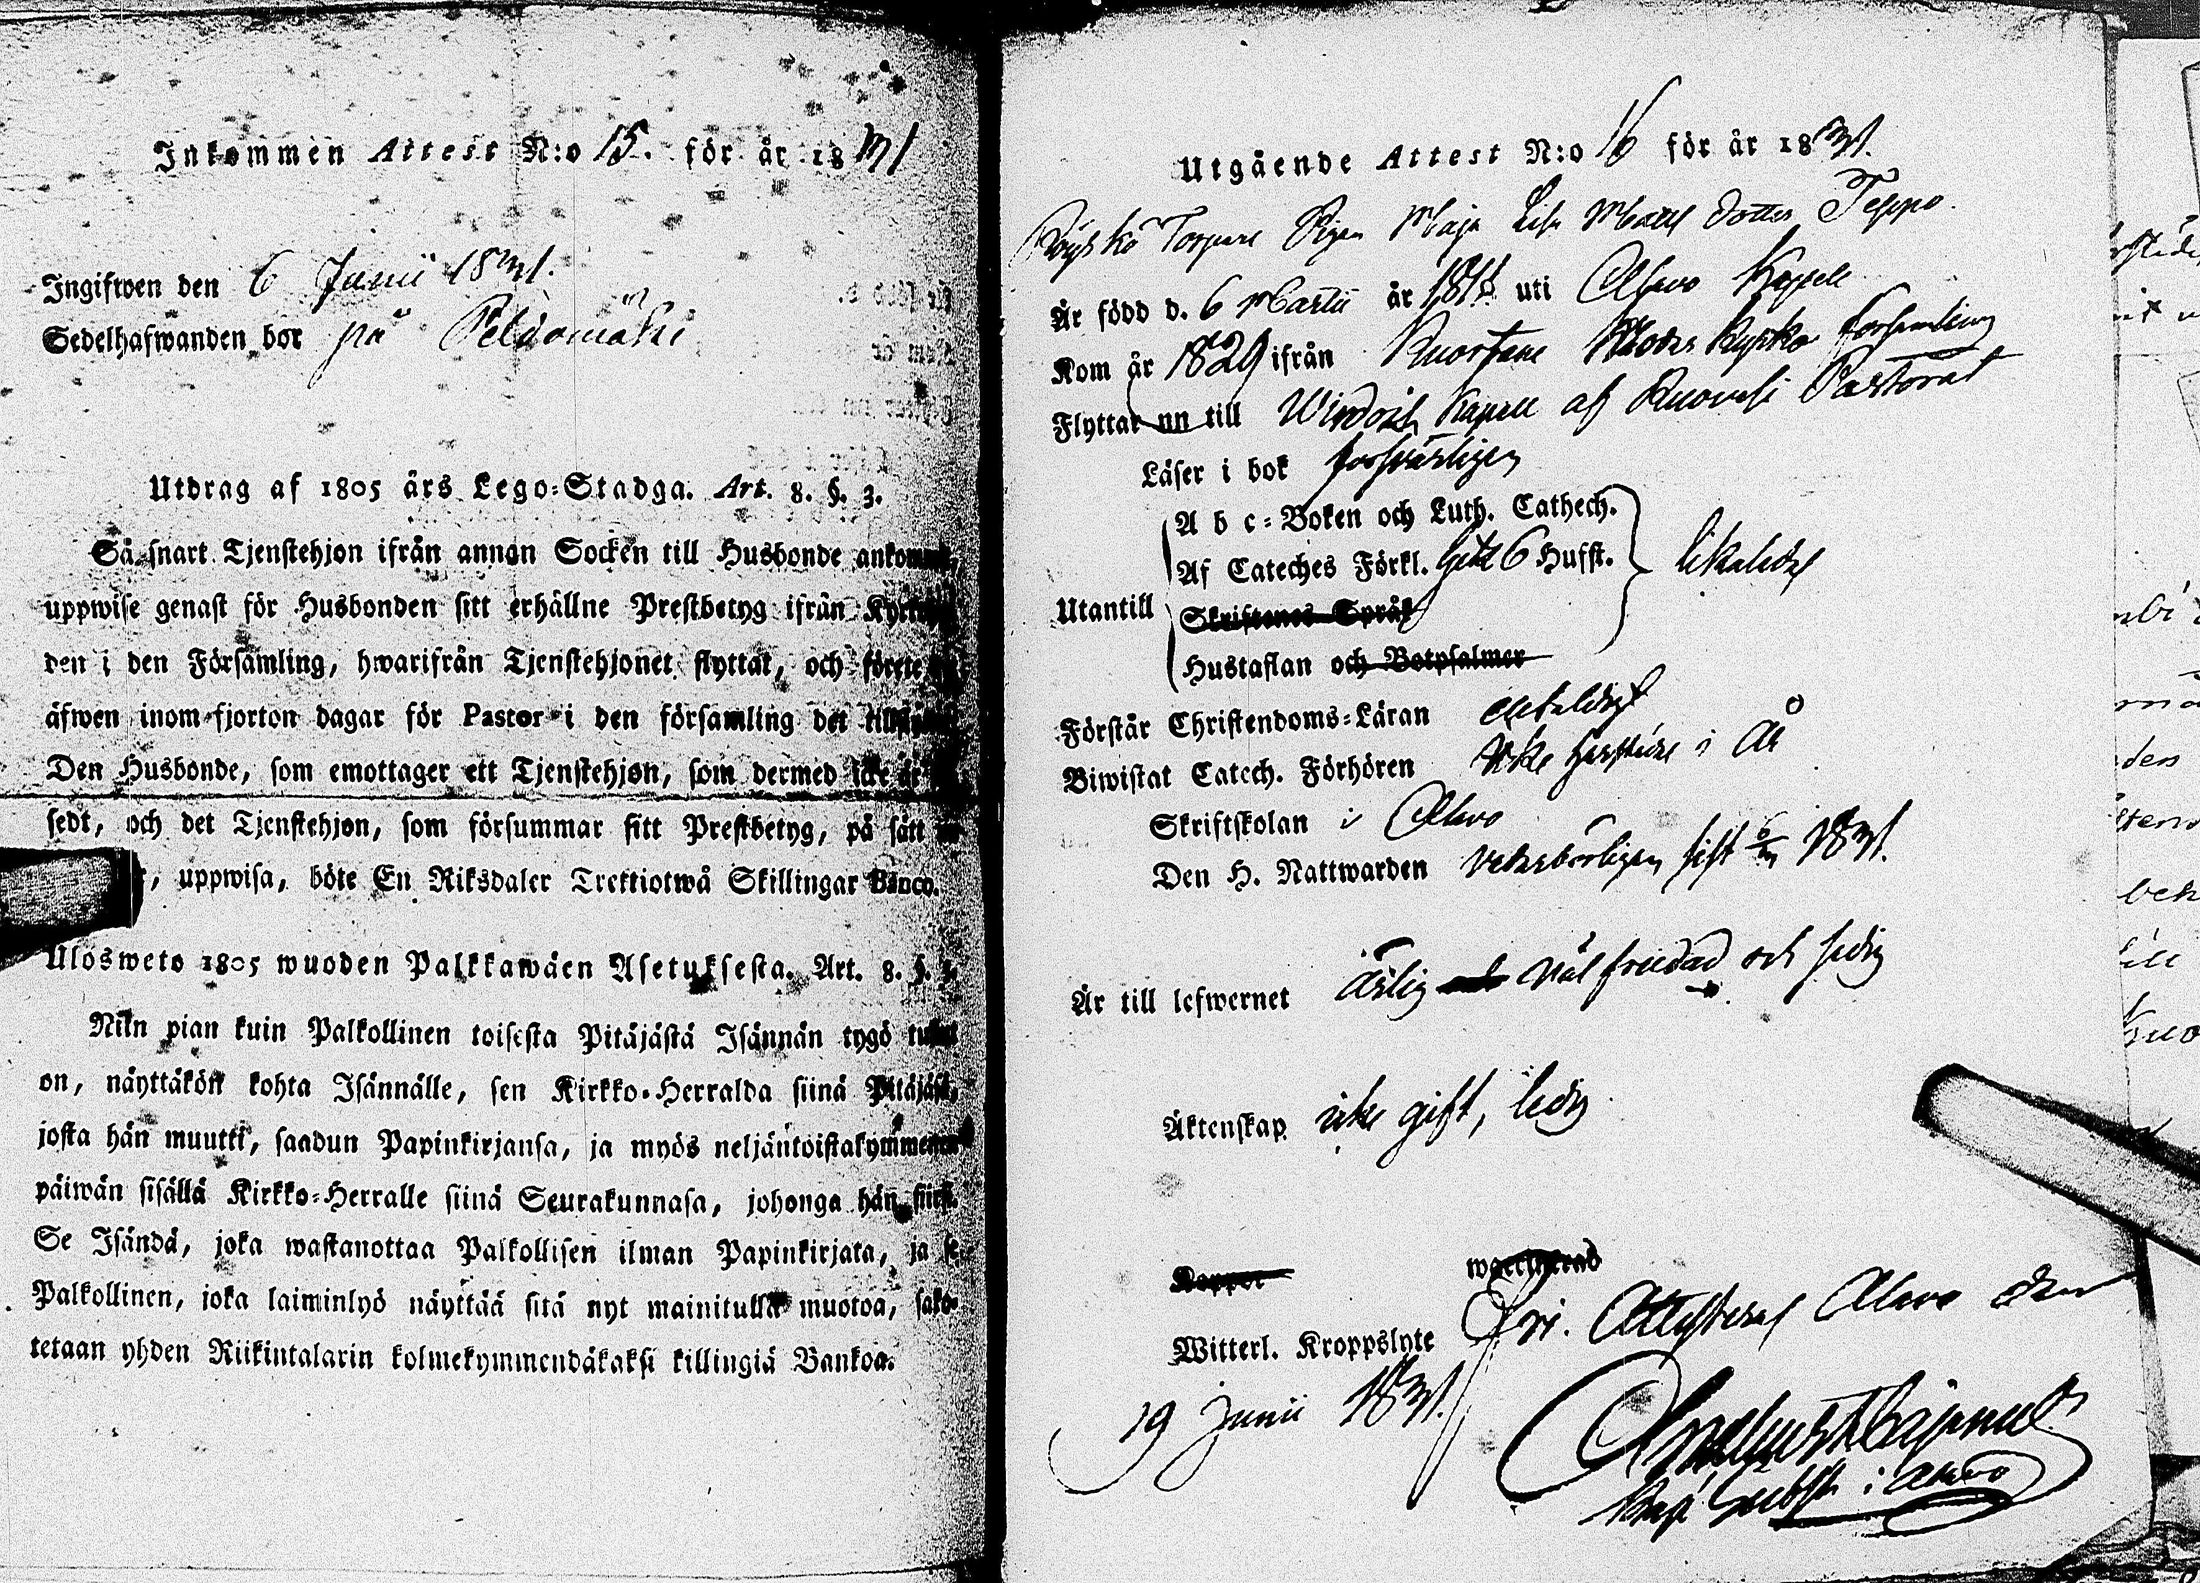 Inkommen Attest N:o 15. för år 1831
Ingifwen den 6 Junii 1831.
Sedelhafwanden bor på Peldomäki
Utdrag af 1805 års Lego-Stadga. Art. 8. §. 3.
Så snart Tjenstehjon ifrån annan Socken till Husbonde
uppwise genast för Husbonden sitt erhållne Prestbetyg ifrån
den i den Församling, hwarifrån Tjenstehjonet flyttat, och förete
äfwen inom fjorton dagar för Pastor i den församling det
Den Husbonde, som emottager ett Tjenstehjon, som dermed icke är
sedt, och det Tjenstehjon, som försummar sitt Prestbetyg, på sätt
uppwisa, böte En Riksdaler Trettiotwå Skillingar Banco.
Ulosweto 1805 wuoden Palkkawäen Asetuksesta. Art. 8. §. 3.
Niin pian kuin Palkollinen toisesta Pitäjästä Isännän tygö tullut
on, näyttäkön kohta Isännälle, sen Kirkko-Herralda siinä
josta hän muutti, saadun Papinkirjansa, ja myös neljäntoistakymmenen
päiwän sisällä Kirkko-Herralle siinä Seurakunnasa, johonga hän
Se Isändä, joka wastanottaa Palkollisen ilman Papinkirjata, ja se
Palkollinen, joka laiminlyö näyttää sitä nyt mainitulla muotoa, sako-
tetaan yhden Riikintalarin kolmekymmendäkaksi killingiä Bankoa.
Utgående Attest N:o 16 för år 1831.
Torpare Pigan Maja Lisa Matts dotter Teppo.
Är född d. 6 Martii år uti Alavo Kapell
Kom år 1829 ifrån Kuortane Moder Kyrko församling
Flyttar nu till Kapell af Ruovesi Pastorat
Läser i bok försvarligen
Utantill
A b c-Boken och Luth. Cathech.
Af Cateches Förkl. 6 Hufst.
Skriftenes Språk
Hustaflan och Botpsalmer
likaledes
Förstår Christendoms-Läran
Biwistat Catech. Förhören icke i År
Skriftskolan i Alavo
Den H. Nattwarden vederbörligen sist 1831.
Är till lefwernet ärlig väl fredad och sedig
Äktenskap icke gift, ledig
Koppor waccinerad
Witterl. Kroppslyte fri. Attesteras Alavo den
19 Junii 1831.
Kap. Subst. i Alavo